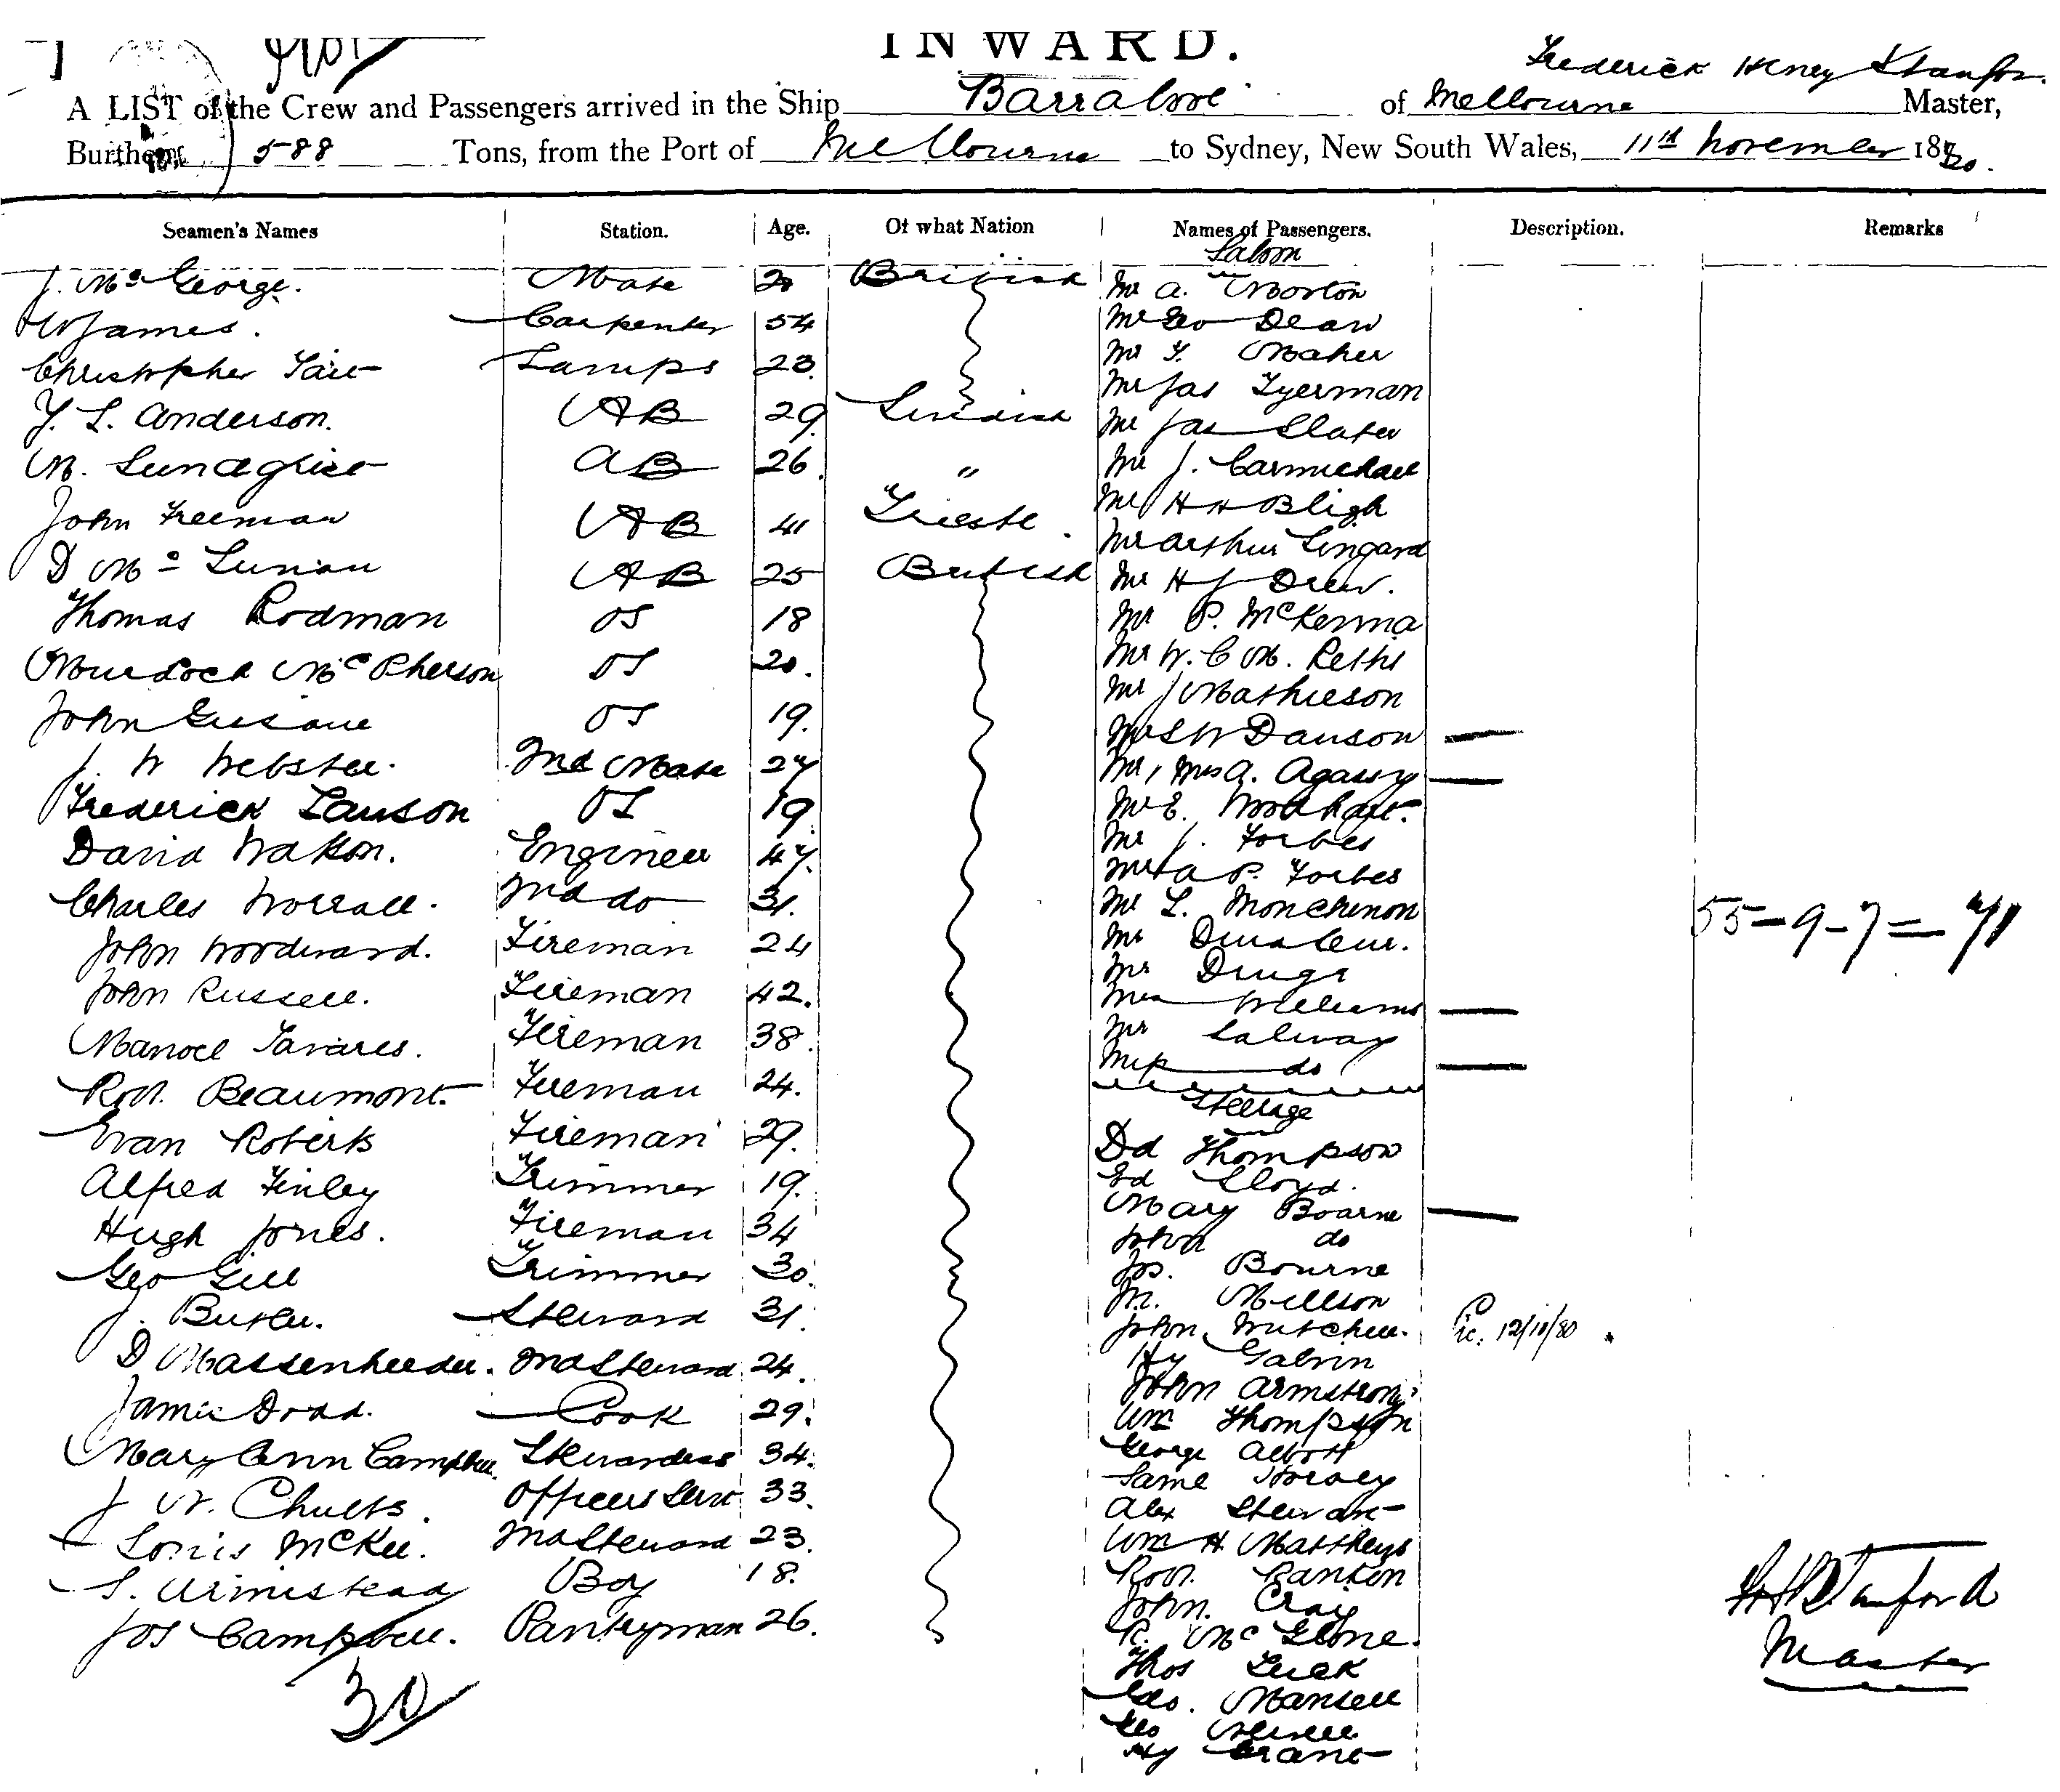 INWARD.
Frederick Henry Stanfor
A LIST of the Crew and Passengers arrived in the Ship Barrabool of Melbourne Master,
Burthen 588 Tons, from the Port of Melbourne to Sydney, New South Wales, 11th November 1880.
Seamen's Names Station. Age. Of what Nation Names of Passengers. Description. Remarks
Saloon
J. Mc George. Mate British Mr A. Morton
W James. Carpenter 54 Mr Geo Dean
Christopher Tait Lamps 23. Mr Y. Maher
Mr Jas Tyerman
Y. L. Anderson. AB 29. Swedish Mr Jas Slater
M. AB 26. " Mr J. Carmichael
John Freeman AB 41 Trieste. Mr H H Bligh
Mr Arthur Lingard
D Mc Lunan AB 25 British Mr H J Drew.
Thomas Rodman OS 18 Mr P. McKenna
Murdock McPherson OS 20. Mr W. C M.
Mr J Mathieson
John OS 19. Dawson
J. W Webster. 2nd Mate 27 Mr, Mrs A. Agassy
Frederick Lawson OS 19. Mr E.
Mr J. Forbes
David Watson. Engineer 47. A P. Forbes
Charles Worrall. 2nd do 31. Mr L. Monchinon 55-9-7=71
John Woodward. Fireman 24 Mr
Mr
John Russell. Fireman 42. Mrs Williams
Manoel Tavares. Fireman 38. Mr Salway
Mrs do
Robt. Beaumont. Fireman 24.
Steerage
Evan Roberts Fireman 29. Dd Thompson
Alfred Finley Trimmer 19. Ed Lloyd.
Mary Boarne
Hugh Jones. Fireman 34 John do
Geo Gill Trimmer 30. Jos. Bourne
Millson
J. Butler. Steward 31. John Mitchell. 12/10/80.
D Massenheeder. 2nd Steward 24. Hy Galvin
John Armstrong
James Dodd. Cook 29. Wm Thompson
Mary Ann Campbell. Stewardess 34. George Abbott
J W. Officers Servt 33.
Alex Stewart
Louis McKee. 2nd Steward 23. Wm H Matthews
S. Armistead Boy 18. Robt. Rankin
John. Craig
Jos Campbell. Pantryman 26. R. Mc Glone.
Thos Luck
30 Geo. Mansell
Geo
Hy Grant
F H Stanford
Master